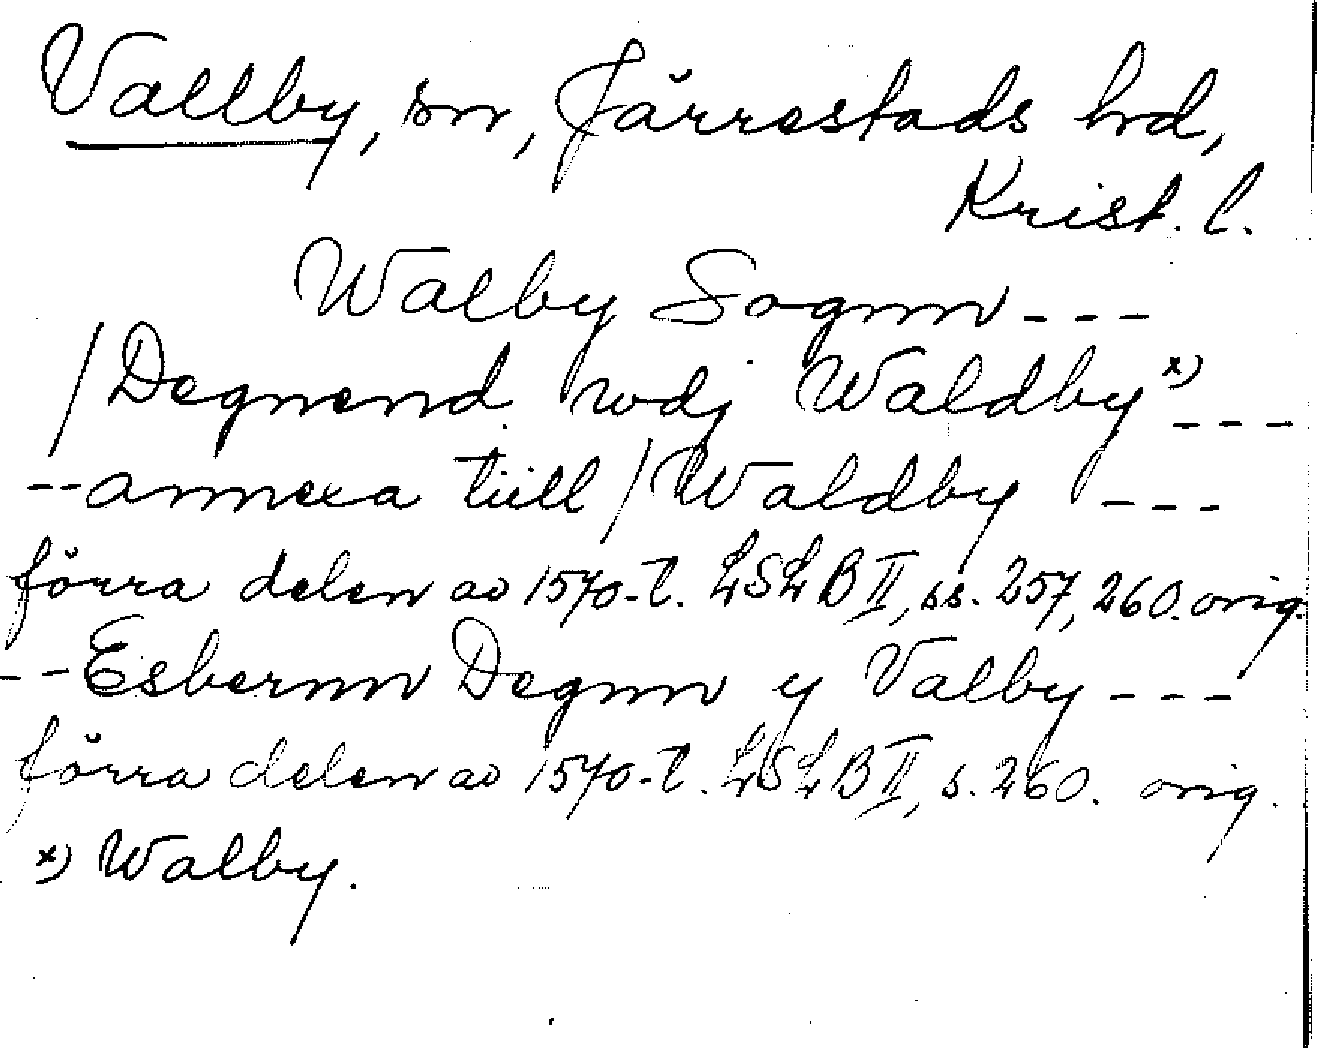 Vallby, sn, Järrestads hrd,
Krist. l.
Walby Sognn ---
/Degnend. wdj Waldby x) ---
--annexa tiill/Waldby ---
förra delen av 1570-t. LSLB II, ss. 257, 260. orig.
--Esbernn Degnn y Valby ---
förra delen av 1570-t. LSLB II, s. 260. orig.
x) Walby.